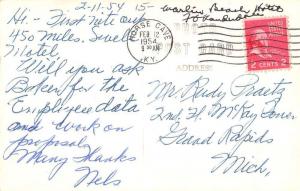 2-11-54 15-
Hi. - First nite out
450 miles. Swell
Motel
Will you ask
Baker for the
Employee data
and work on
proposal
Many Thanks
Nels
Marlin Beach Hotel
Ft Lauderdale
HORSE CAVE
FEB 12
9 30 AM
1954
KY.
POST CARD
ADDRESS
2 CENTS 2
Mr Rudy Praetz
2nd Fl. McKay Tower
Grand Rapids
Mich,